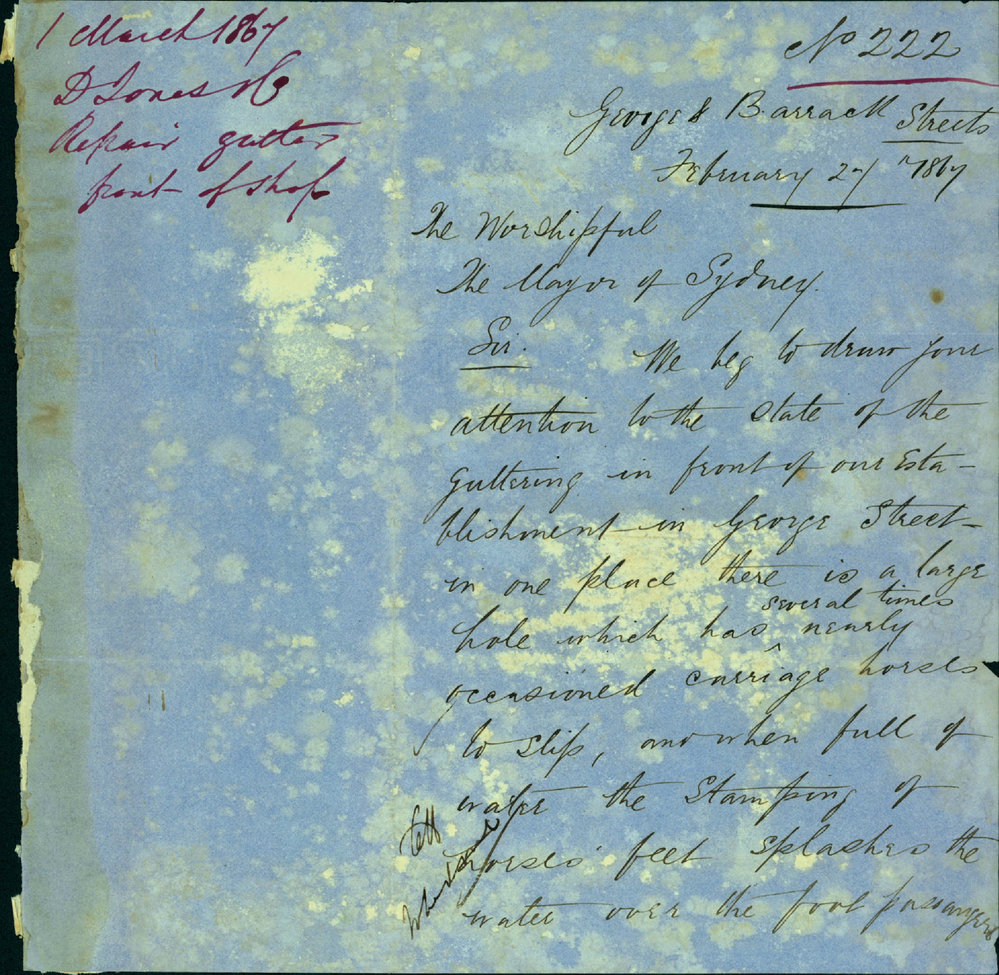 1 March 1867
D Jones & Co
Repair gutter
front of shop
No 222
George & Barrack Streets
February 27" 1867
The Worshipful
The Mayor of Sydney.
Sir. We beg to draw your
attention to the state of the
guttering in front of our Esta-
blishment in George Street-
in one place there is a large
several times
hole which has ^ nearly
occasioned carriage horses
to slip, and when full of
water the stamping of
horses' feet splashes the
water over the foot passangers